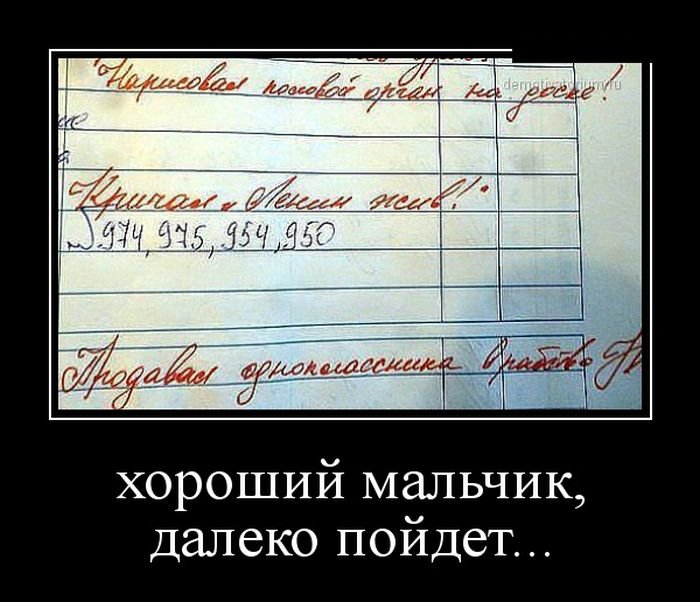 "Нарисовал половой орган на доске!
demotivatorium.ru
Кричал "Ленин жив!"
974, 975, 954, 950
Продавал одноклассника в рабство
хороший мальчик,
далеко пойдет...